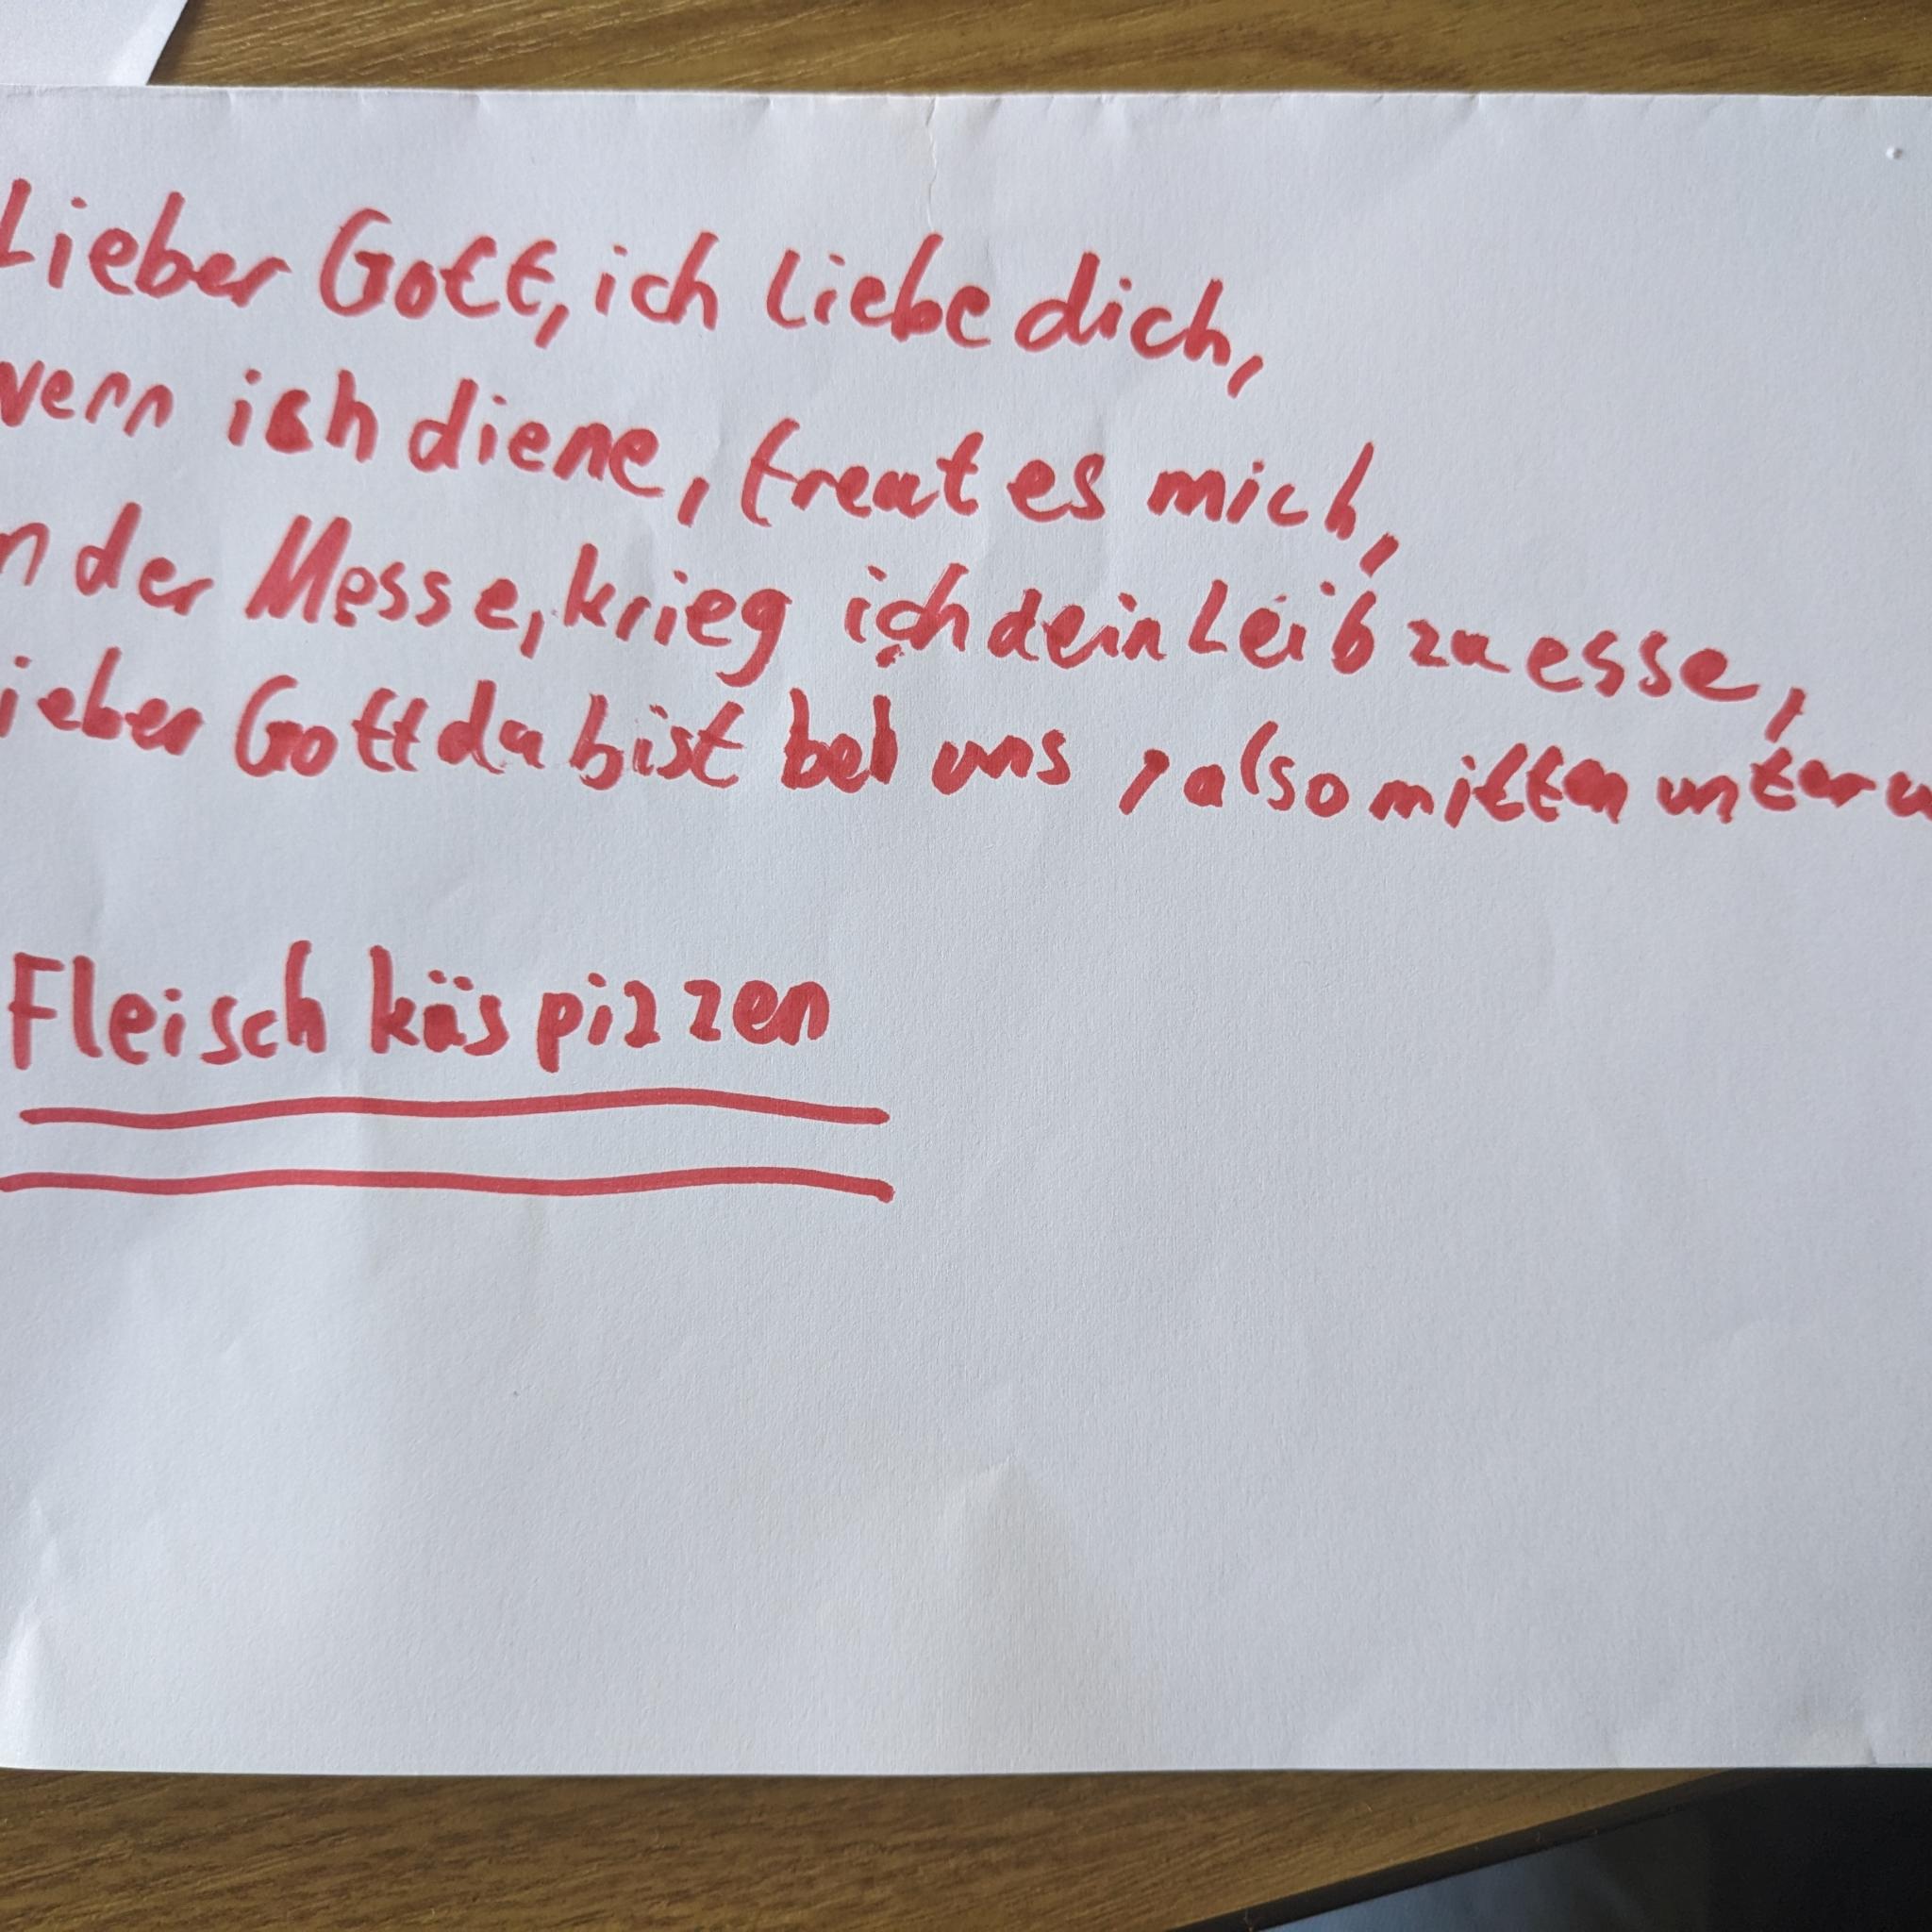 Lieber Gott, ich liebe dich,
wenn ich diene, freut es mich,
in der Messe, krieg ich dein Leib zu esse,
lieber Gott du bist bei uns, also mitten unter
Fleisch käs pizzen